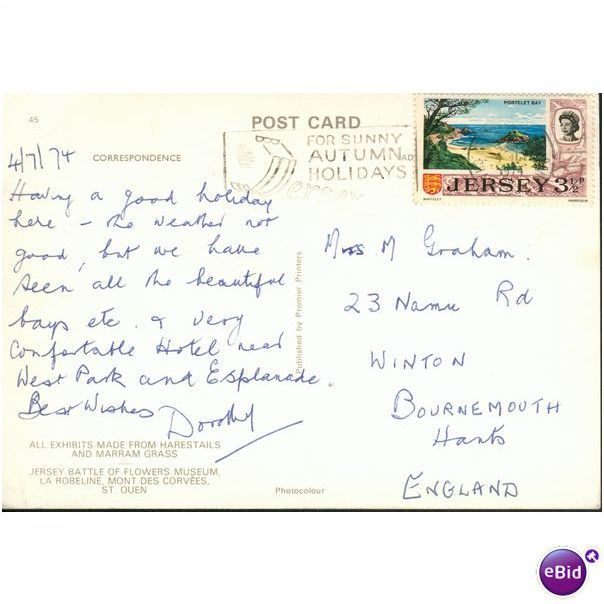 45
POST CARD
PORTELET BAY
FOR SUNNY
AUTUMN
HOLIDAYS
Jersey
JERSEY 3½P
WHITELEY HARRISON
4/7/74
CORRESPONDENCE
Having a good holiday
here - the weather not
good, but we have
seen all the beautiful
bays etc. & very
Comfortable Hotel near
West Park and Esplanade.
Best Wishes Dorothy
Published by Premier Printers
Miss M Graham.
23 Namu Rd
WINTON
BOURNEMOUTH
Hants
ENGLAND
ALL EXHIBITS MADE FROM HARESTAILS
AND MARRAM GRASS
JERSEY BATTLE OF FLOWERS MUSEUM,
LA ROBELINE, MONT DES CORVÉES,
ST. OUEN
Photocolour
eBid